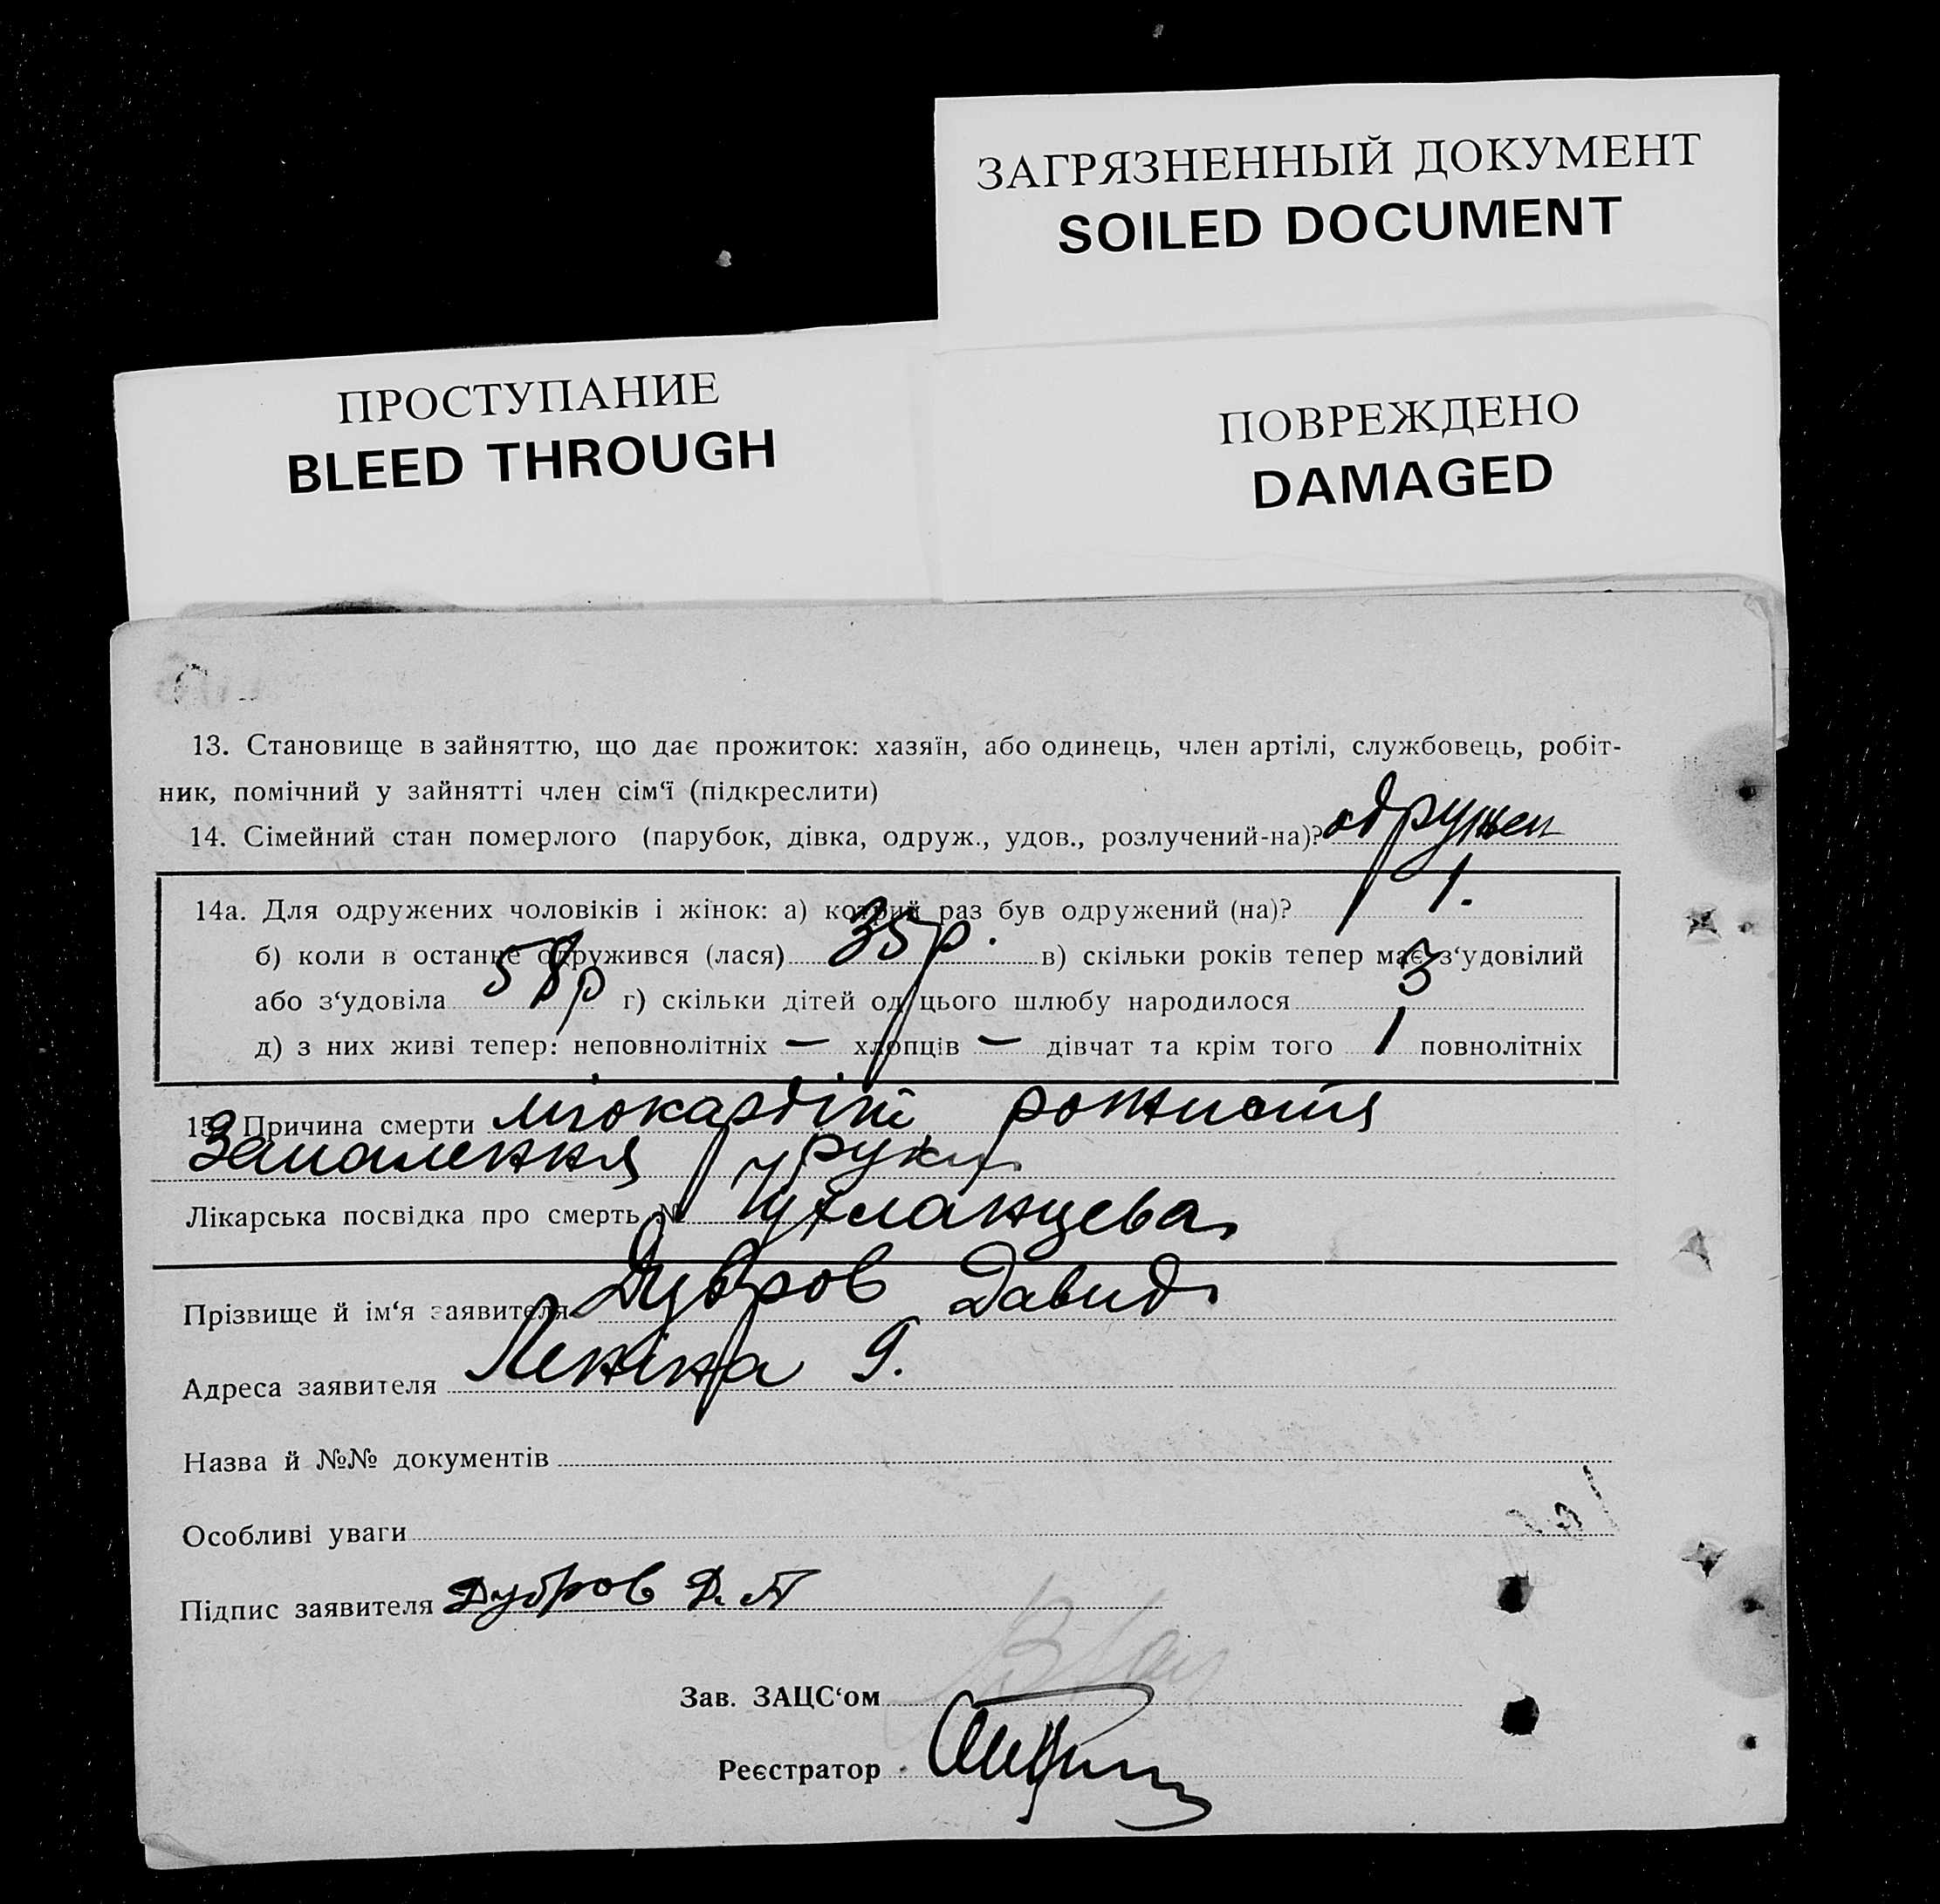 ЗАГРЯЗНЕННЫЙ ДОКУМЕНТ
SOILED DOCUMENT
ПРОСТУПАНИЕ
BLEED THROUGH
ПОВРЕЖДЕНО
DAMAGED
13. Становище в зайняттю, що дає прожиток: хазяїн, або одинець, член артілі, службовець, робіт-
ник, помічний у зайнятті член сім'ї (підкреслити)
14. Сімейний стан померлого (парубок, дівка, одруж., удов., розлучений-на)? одружен
14а. Для одружених чоловіків і жінок: а) котрий раз був одружений (на)? 1.
б) коли в останнє одружився (лася) 35 р. в) скільки років тепер має з'удовілий
або з'удовіла 58 р г) скільки дітей од цього шлюбу народилося 3
д) з них живі тепер: неповнолітніх — хлопців — дівчат та крім того 1 повнолітніх
15. Причина смерти міокардіт,
запалення руки
Лікарська посвідка про смерть №
Прізвище й ім'я заявителя Дубров Давид
Адреса заявителя Леніна 9.
Назва й №№ документів
Особливі уваги
Підпис заявителя Дубров Д.
Зав. ЗАЦС'ом
Реєстратор